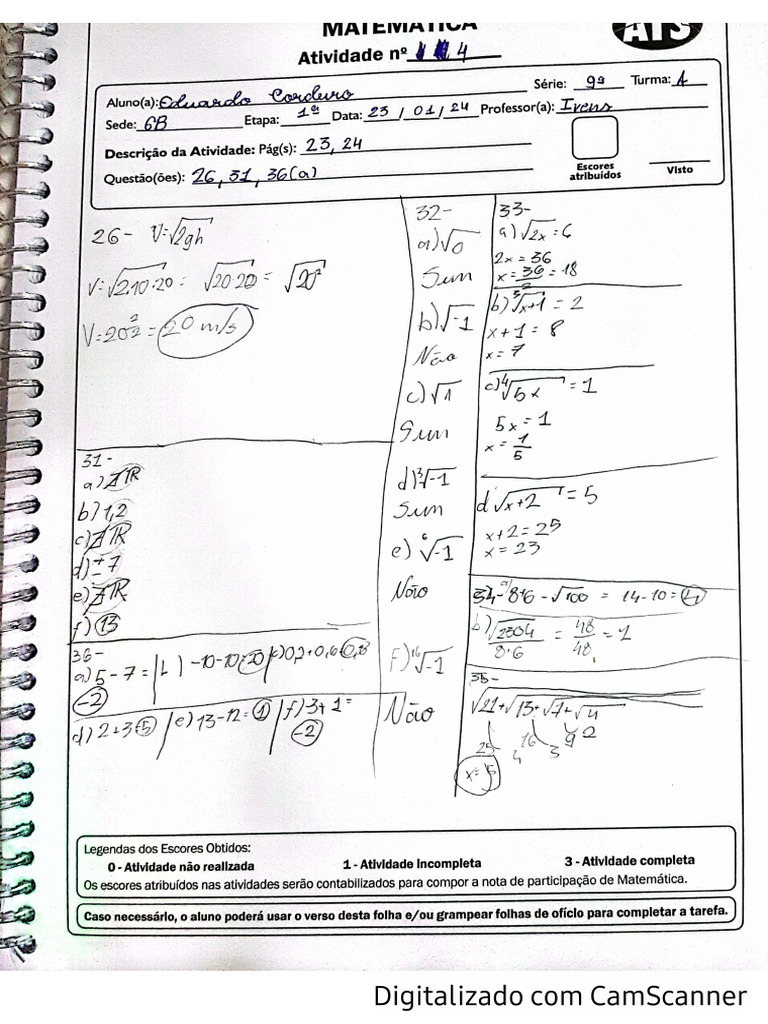 MATEMÁTICA
ATPS
Atividade nº 4
Aluno(a): Eduardo Cordeiro Série: 9ª Turma: A
Sede: GB Etapa: 1ª Data: 23/01/24 Professor(a): Ivens
Descrição da Atividade: Pág(s): 23, 24
Questão(ões): 26, 31, 36(a)
Escores atribuídos
Visto
26- V=√2gh
V=√2.10.20 = √20.20 = √20²
V=20 = 20 m/s
31-
a) ∄ IR
b) 1,2
c) ∄ IR
d) ±7
e) ∄ IR
f) 13
36-
a) 5-7=
-2
-10-10=-20
c) 0,2+0,6=0,8
d) 2+3=5
e) 13-12=1
f) 3+1=
-2
32-
a) √0
Sim
b) √-1
Não
c) √1
Sim
d) ³√-1
Sim
e) ⁶√-1
Não
f) ¹⁶√-1
Não
33-
a) √2x = 6
2x = 36
x = 36/2 = 18
b) ³√x+1 = 2
x+1 = 8
x = 7
c) ⁴√5x = 1
5x = 1
x = 1/5
d √x+2 = 5
x+2 = 25
x = 23
34- a) 8+6-√100 = 14-10=4
b) √2304/8.6 = 48/48 = 1
35-
√21+√13+√7+√4
25 4 16 3 9 2
x=5
Legendas dos Escores Obtidos:
0 - Atividade não realizada 1 - Atividade Incompleta 3 - Atividade completa
Os escores atribuídos nas atividades serão contabilizados para compor a nota de participação de Matemática.
Caso necessário, o aluno poderá usar o verso desta folha e/ou grampear folhas de ofício para completar a tarefa.
Digitalizado com CamScanner